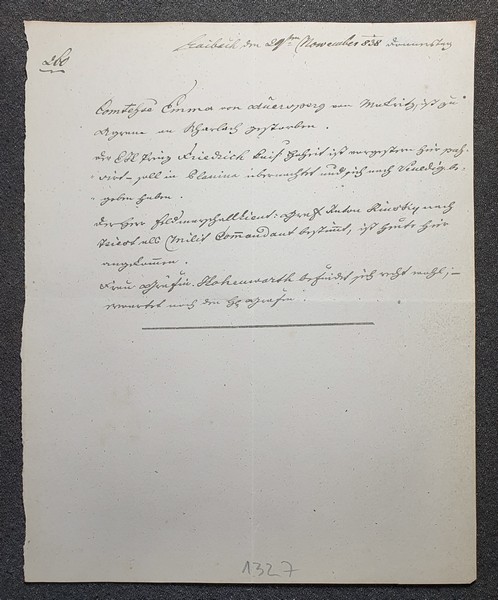 Laibach den 29ten November 838 Donnerstag
Comtesse Emma von Auersperg von Mokritz, ist zu
Agram an Scharlach gestorben.
der Erzh Prinz Friedrich kais Hoheit ist vorgestern hier pas-
sirt – soll in Planina übernachtet und sich nach Venedig be-
geben haben.
der Herr Feldmarschalllieut: Graf Anton Kinsky nach
Triest als Milit Commandant bestimmt, ist heute hier
angekommen.
Frau Gräfin Hohenwarth befindet sich recht wohl; –
erwartet noch den Grafen.
1327